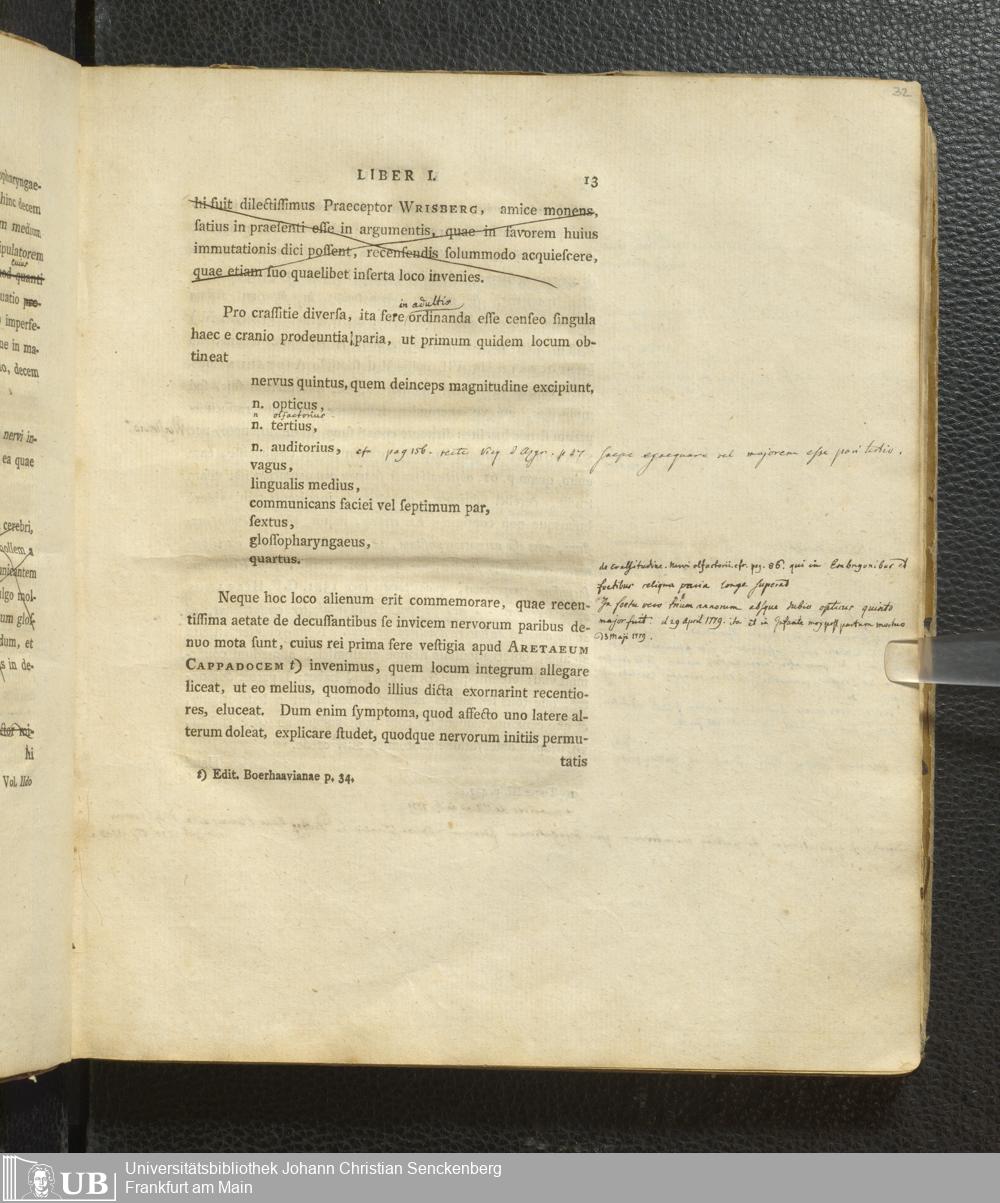 32
LIBER I. 13
hi fuit dilectiſſimus Praeceptor WRISBERG, amice monens,
ſatius in praeſenti eſſe in argumentis, quae in favorem huius
immutationis dici poſſent, recenſendis ſolummodo acquieſcere,
quae etiam ſuo quaelibet inſerta loco invenies.
in adultis
Pro craſſitie diverſa, ita fere ordinanda eſſe cenſeo ſingula
haec e cranio prodeuntia paria, ut primum quidem locum ob-
tineat
nervus quintus, quem deinceps magnitudine excipiunt,
n. opticus,
n olfactorius.
n. tertius,
n. auditorius, cfr pag 156. recte Vicq d'Azyr. saepe majorem esse pari tertio.
vagus,
lingualis medius,
communicans faciei vel ſeptimum par,
ſextus,
gloſſopharyngaeus,
quartus.
de craſſitudine. nervi olfactorii. cfr. pag. 86. qui in Embryonibus et
foetibus reliqua paria longe superat
In foetu vero trium annorum absque dubio opticus quinto
major fuit. d 29 April 1779. et in Infante mox post partum mortuo
d 3 Maji 1779.
Neque hoc loco alienum erit commemorare, quae recen-
tiſſima aetate de decuſſantibus ſe invicem nervorum paribus de-
nuo mota ſunt, cuius rei prima fere veſtigia apud ARETAEUM
CAPPADOCEM t) invenimus, quem locum integrum allegare
liceat, ut eo melius, quomodo illius dicta exornarint recentio-
res, eluceat. Dum enim ſymptoma, quod affecto uno latere al-
terum doleat, explicare ſtudet, quodque nervorum initiis permu-
tatis
t) Edit. Boerhaavianae p. 34.
ophary­ngae-
hinc decem
m medium,
ipulatorem
cuius
nod quanti
uatio pro-
imperfe-
ne in ma-
io, decem
nervi in-
ea quae
cerebri,
mollem a
municantem
ulgo mol-
um gloſ-
dum, et
s in de-
ctor mi-
hi
Vol. IIdo
UB
Universitätsbibliothek Johann Christian Senckenberg
Frankfurt am Main